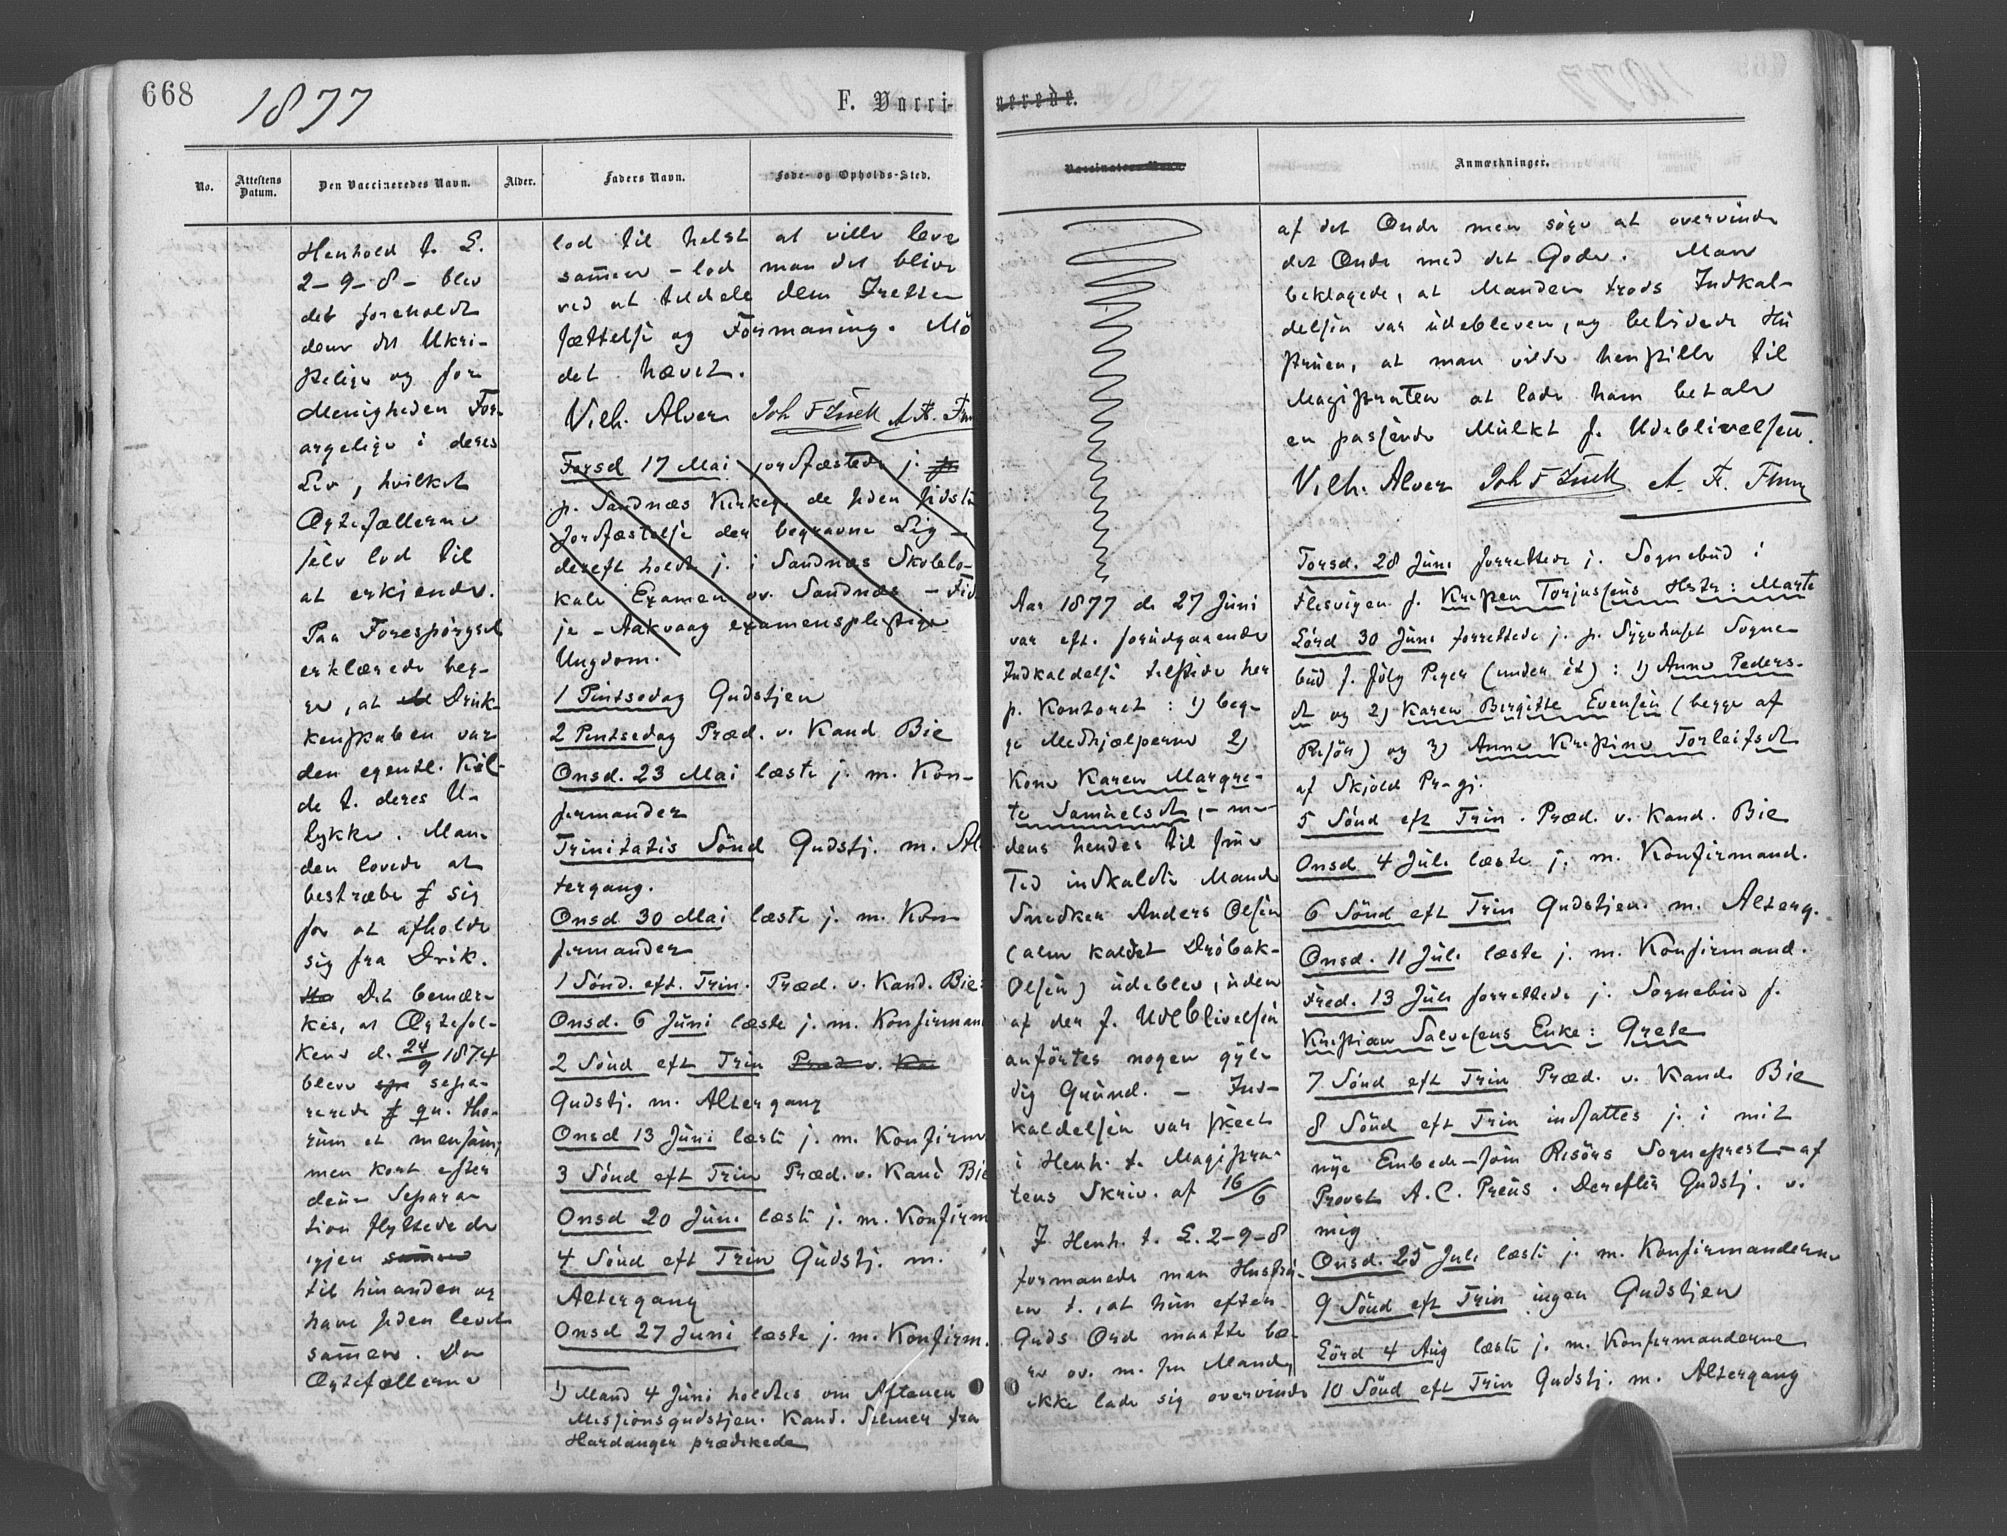 668
1877
F. Vacci-
nerede.
No.
Attestens Datum.
Den Vaccineredes Navn.
Alder.
Faders Navn.
Føde- og Opholds-Sted.
Vaccinateurs Navn.
Anmærkninger.
Henhold t. L.
2-9-8- blev
det foreholdt
dem det Ukri-
stelige og for
Menigheden For-
argelige i deres
Liv, hvilket
Ægtefællerne
selv lod til
at erkjende.
Paa Forespørgsel
erklærede beg-
ge, at Drik-
kenskaben var
den egentl. Kil-
de t. deres U-
lykke. Man-
den lovede at
bestræbe sig
for at afholde
sig fra Drik.
Det bemær-
kes, at Ægtefol-
kene d. 24/9 1874
bleve sepa-
rerede qu. tho-
rum et mensam,
men kort efter
denne Separa-
tion flyttede de
igjen
til hinanden og
have siden levet
sammen. Da
Ægtefællerne
lod til helst at ville leve
sammen - lod man det blive
ved at tildele dem Irette-
sættelse og Formaning. Mö-
det hævet.
Vilh. Alver Joh F Lück A. F.
Torsd 17 Mai jordfæstede j.
p. Sandnæs Kirkeg. de siden sidste
Jordfæstelse der begravne Lig -
dereft holdt j. i Sandnæs Skolelo-
kale Examen ov. Sandnæs -
je - Aakvaag examenspligtige
Ungdom.
1 Pintsedag Gudstjen
2 Pintsedag Præd. v. Kand Bie
Onsd. 23 Mai læste j. m. Kon-
firmander
Trinitatis Sönd Gudstj. m. Al-
tergang.
Onsd 30 Mai læste j. m. Kon-
firmander
1 Sönd. eft. Trin. Præd. v. Kand. Bie
Onsd. 6 Juni læste j. m. Konfirmand
2 Sönd eft Trin Præd v. Ka
Gudstj. m. Altergang
Onsd 13 Juni læste j. m. Konfirm
3 Sönd eft Trin Præd. v. Kand Bie
Onsd 20 Juni læste j. m. Konfirm
4 Sönd eft Trin Gudstj. m.
Altergang
Onsd 27 Juni læste j. m. Konfirm.
1) Mand 4 Juni holdtes om Aftenen
Missionsgudstjen. Kand. Selmer fra
Hardanger prædikede
Aar 1877 d. 27 Juni
var eft. forudgaaende
Indkaldelse tilstede her
p. Kontoret: 1) beg-
ge Medhjælperne 2)
Kone Karen Margre-
te Samuelsdt, - me-
dens hendes til samme
Tid indkaldte Mand
Snedker Anders Olsen
(alm kaldet Dröbak-
Olsen) udeblev, uden
at der f. Udeblivelsen
anförtes nogen gyl-
dig Grund. - Ind-
kaldelsen var skeet
i Henh. t. Magistra-
tens Skriv. af 16/6
I Henh. t. L. 2-9-8
formanede man Hustru-
en t., at hun efter
Guds Ord maatte bæ-
re ov. m. sin Mand,
ikke lade sig overvinde
af det Onde men söge at overvinde
det Onde med det Gode. Man
beklagede, at Manden trods Indkal-
delsen var udebleven, og betydede Hu-
struen, at man vilde henstille til
Magistraten at lade ham betale
en passende Mulkt f. Udeblivelsen.
Vilh. Alver Joh F Lück A. F.
Torsd. 28 Juni forrettede j. Sognebud i
Flisvigen f. Kristen Torjussens Hstr: Marte
Lörd 30 Juni forrettede j. p. Sygehuset Sogne-
bud f. Jölg Piger (under ét): 1) Anne Peders-
dt og 2) Karen Birgitte Evensen (begge af
Risör) og 3) Anne Kristine Torleifsdt
af Skjold Prgj.
5 Sönd eft Trin. Præd. v. Kand. Bie
Onsd 4 Juli læste j. m. Konfirmand.
6 Sönd eft Trin Gudstjen. m. Alterg.
Onsd. 11 Juli læste j. m. Konfirmand.
Fred. 13 Juli forrettede j. Sognebud f.
Kristian Salvesens Enke: Grete
7 Sönd eft Trin Præd. v. Kand. Bie
8 Sönd eft Trin indsattes j. i mit
nye Embede - som Risörs Sogneprest - af
Provst A. C. Preus. Derefter Gudstj. v.
mig
Onsd. 25 Juli læste j. m. Konfirmanderne
9 Sönd eft Trin ingen Gudstjen
Lörd 4 Aug læste j. m. Konfirmanderne
10 Sönd eft Trin Gudstj. m. Altergang